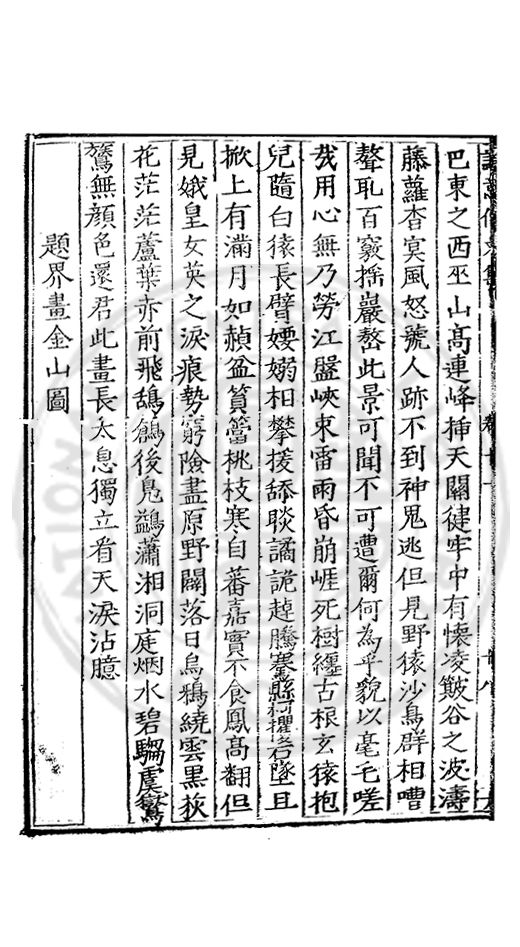 巴東之西巫山高連峰揷天關徤牢中有懷凌簸谷之波濤
藤蘿杳冥風怒號人跡不到神鬼逃但見野猿沙鳥群相嘈
聱耴百竅揺巖嶅此景可聞不可遭爾何為乎貌以毫毛嗟
㢤用心無乃勞江盤峽束雷雨昏崩崕死樹纏古根玄猿抱
兒隨白猿長臂嫂嫋相攀援舔睒譎詭趠騰騫懸柯攫石墜且
掀上有滿月如赬盆篔簹桃枝寒自蕃嘉實不食鳳高翻但
見娥皇女英之淚痕勢窮險盡原野闢落日烏鴉繞雲黒荻
花茫茫蘆葉赤前飛鴰鶬後鳬鷁瀟湘洞庭烟水碧騶虞鸑
鷟無顔色還君此畫長太息獨立看天淚沾臆
題界畫金山圖